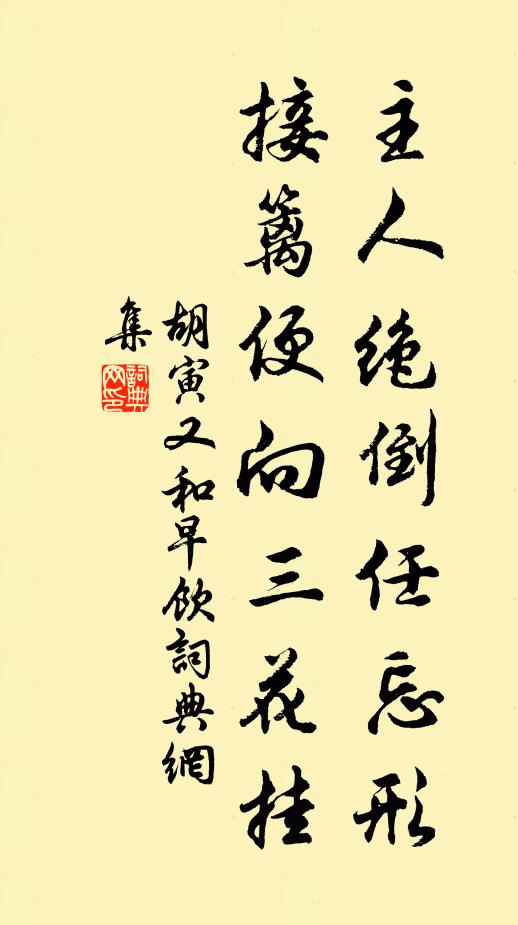 主人绝倒任忘形
接篱便向三花挂
胡寅又和早饮詞典網
集
詞典
网印